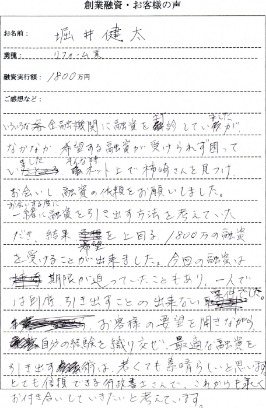 創業融資・お客様の声
お名前： 堀井健太
業種： リフォーム業
融資実行額： 1800万円
ご感想など：
いろいろな金融機関に融資を していましたが、
なかなか希望する融資が受けられず困って
いました そんな時 ネット上で柿崎さんを見つけ、
お会いし融資の依頼をお願いしました。
お会いする度に
一緒に融資を引き出す方法を考えていた
だき、結果 希望を上回る、1800万の融資
を受けることが出来ました。今回の融資は
期限が迫っていたこともあり、一人で
は到底、引き出すことの出来ない
お客様の要望を聞きながら、
自分の経験を織り交ぜ、最適な融資を
引き出す 術は、若くても素晴らしいと思います。
とても信頼できる行政書士さんで、これからも末永く
お付き合いしていきたいと考えています。